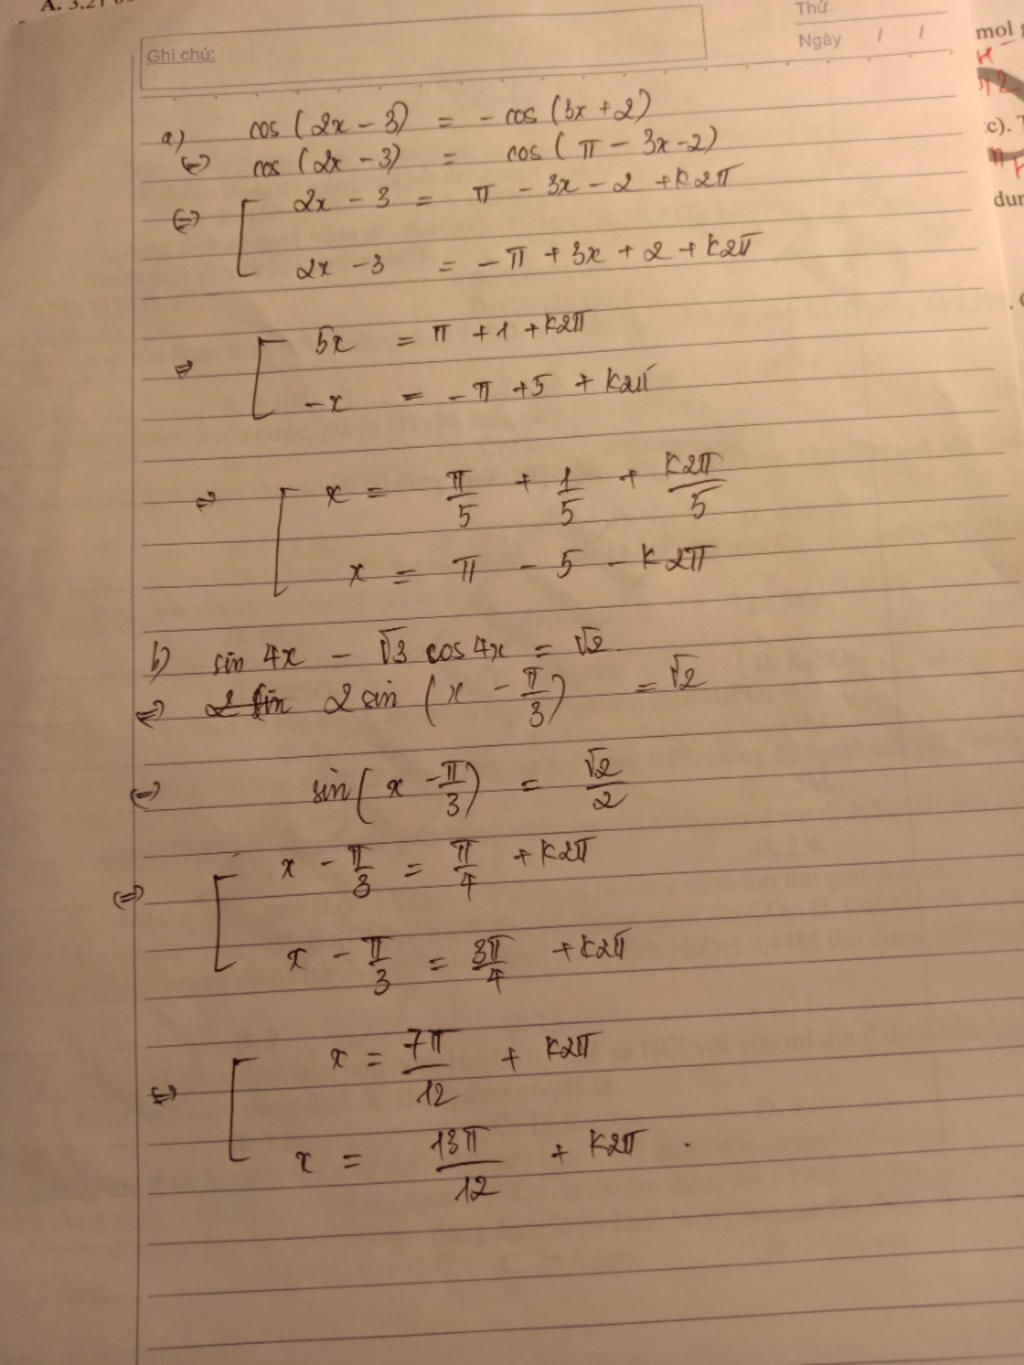 A. 3.21
Thứ
Ghi chú:
Ngày / /
mol
a) cos (2x - 3) = - cos (3x + 2)
(=) cos (2x - 3) = cos ( π - 3x - 2)
(=) [ 2x - 3 = π - 3x - 2 + k2π
2x - 3 = - π + 3x + 2 + k2π
=> [ 5x = π + 1 + k2π
- x = - π + 5 + k2π
=> [ x = π/5 + 1/5 + k2π/5
x = π - 5 - k2π
b) sin 4x - √3 cos 4x = √2.
=> 2 sin ( x - π/3 ) = √2
(=) sin ( x - π/3 ) = √2/2
(=) [ x - π/3 = π/4 + k2π
x - π/3 = 3π/4 + k2π
(=) [ x = 7π/12 + k2π
x = 13π/12 + k2π .